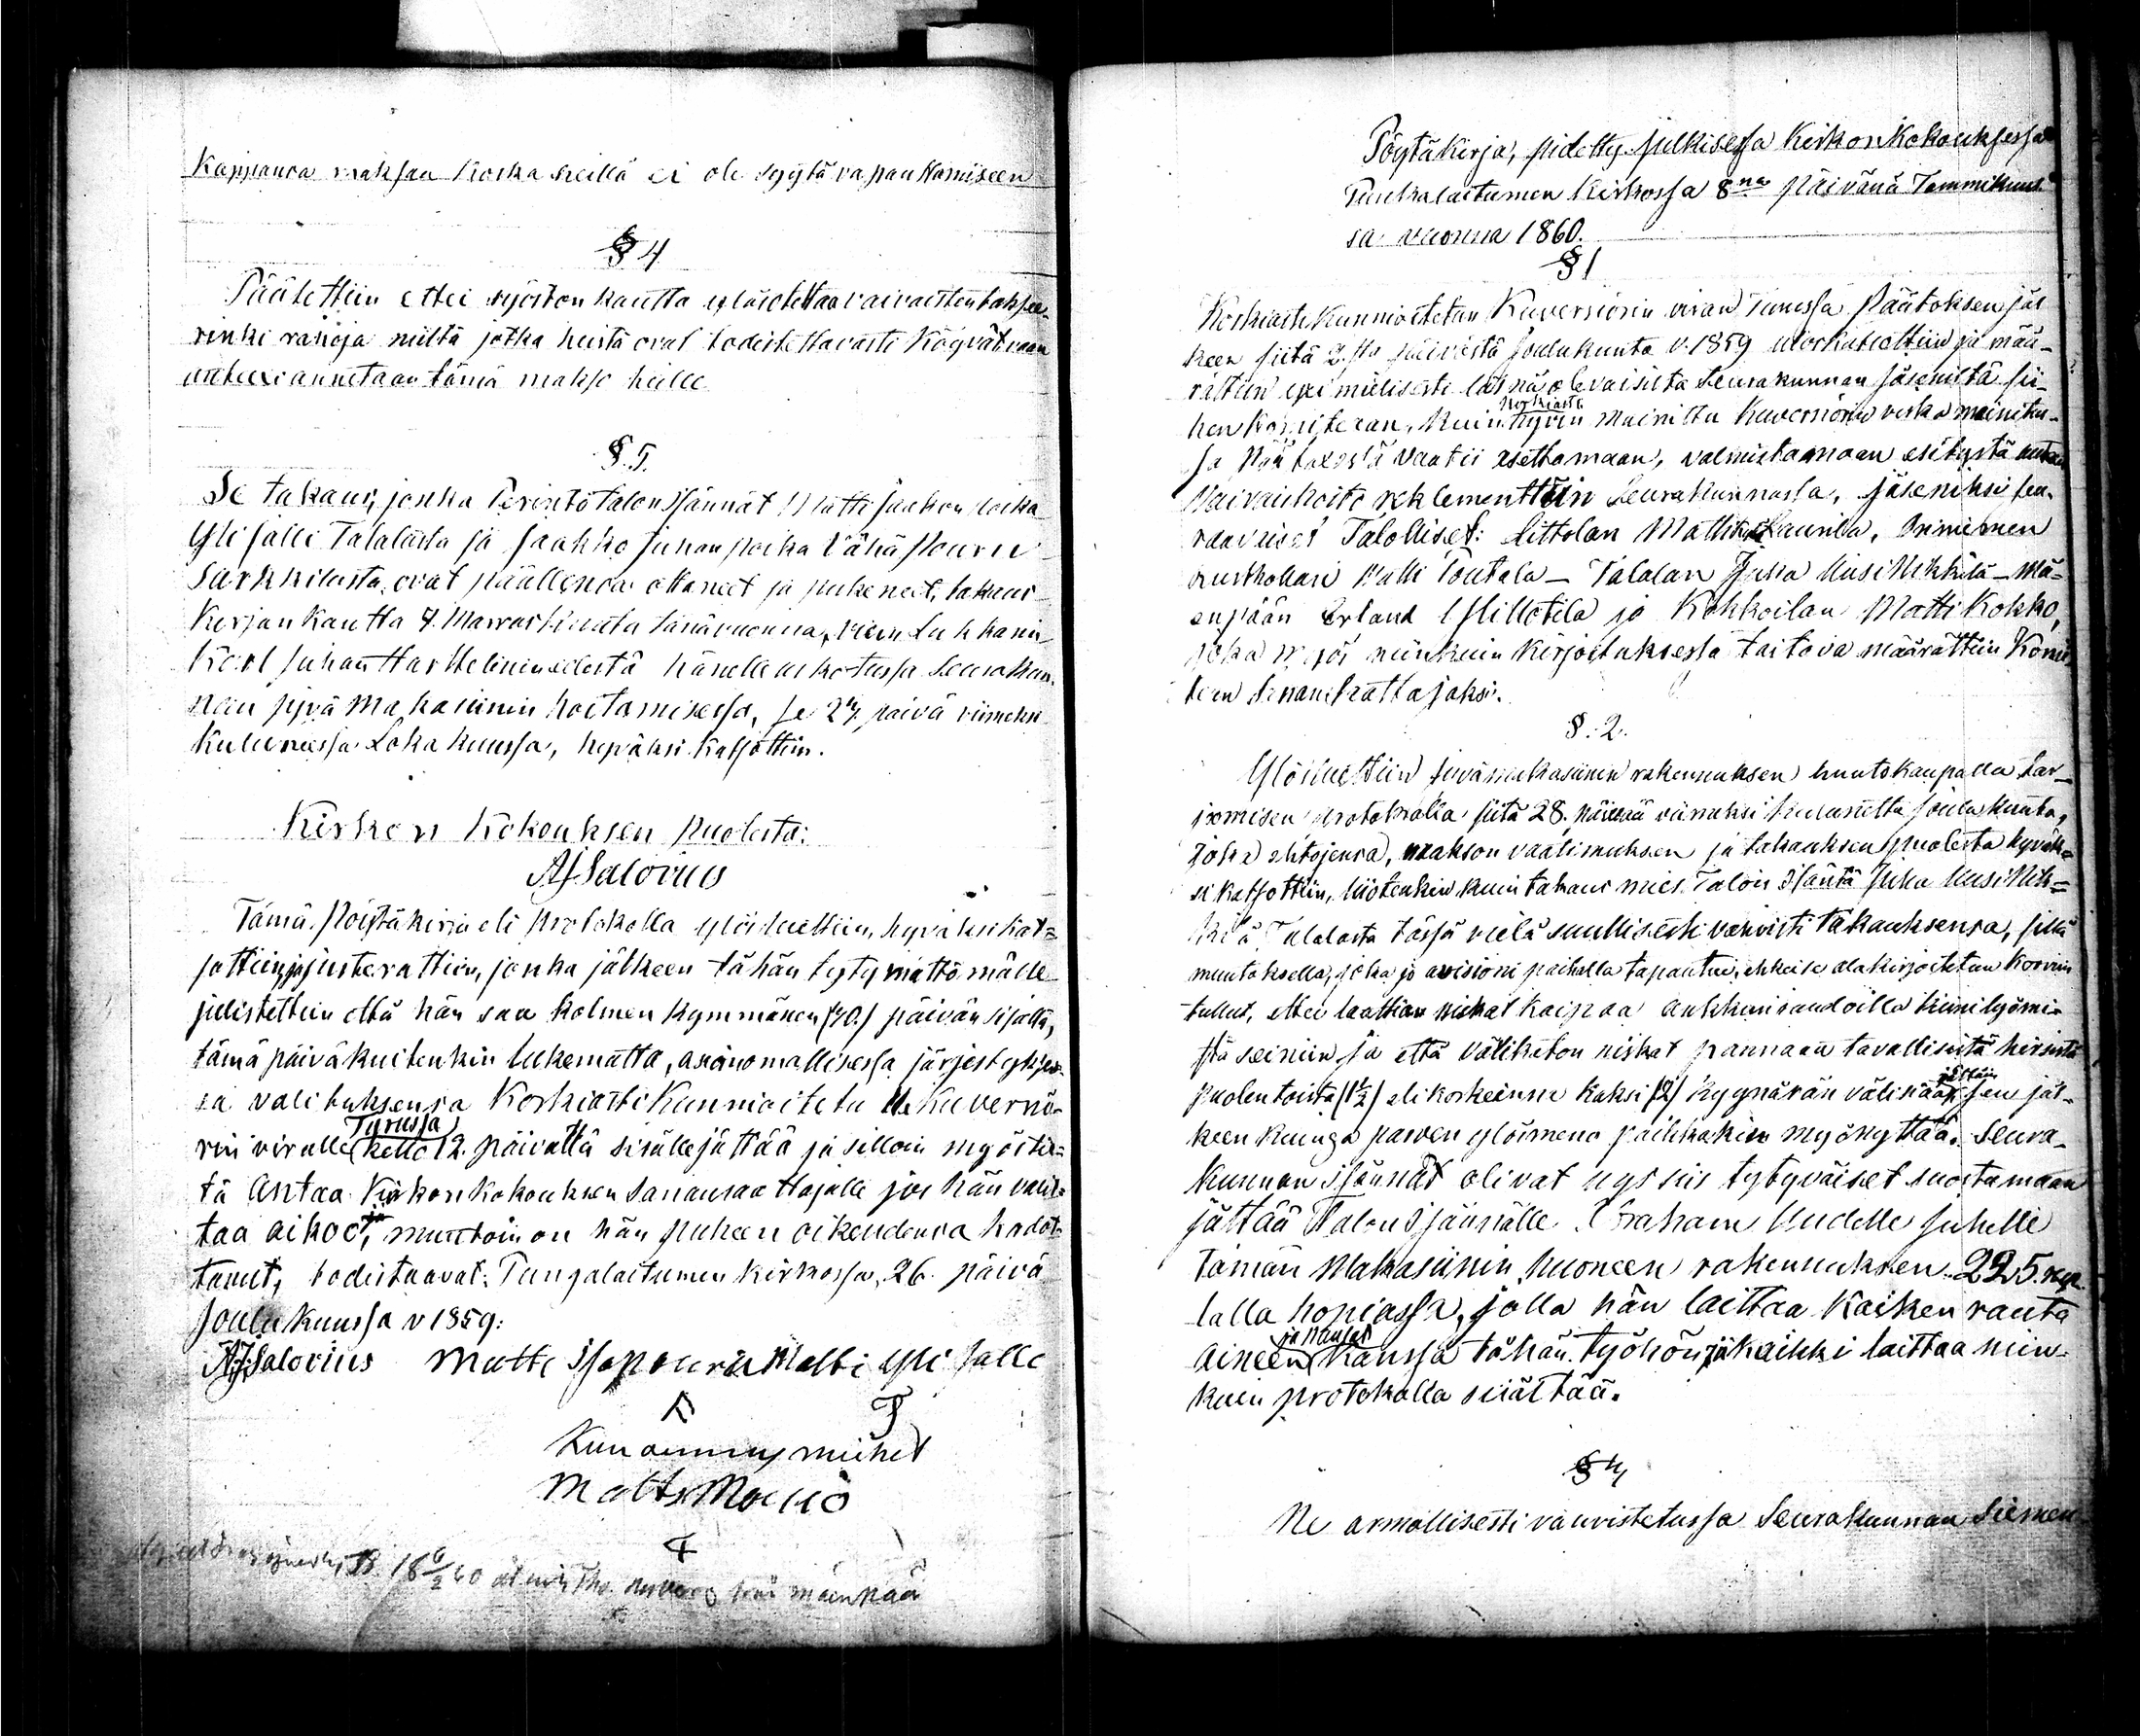 Kappansa maksaa koska heillä ei ole syytä vapauttamiseen
§ 4
Päätettiin ettei ryöstön kautta ylösotettaa vaivaisten taksee-
rinki rahoja niiltä jotka heistä ovat todistettavasti köyvät vaan
anteexi annetaan tämä makso heille
§. 5.
Se takaus, jonka Perintö talon Isännät Matti Jaakon poika
Yli Jalli Talalasta ja Jaakko Juhan poika Vähä Pouru
Sarkkilasta, ovat päällensä ottaneet ja puheneet, takaus
Kirjan kautta 7. Marraskuuta tänävuonna, Lukkarin
Karl Juhan Harthelinin edestä hänelle uskotussa Seurakun-
nan jyvä Makasiinin hoitamisessa, se 27 päivä viimeksi
kuluneessa Lokakuussa, hyväksi katsottiin.
Kirkon kokouksen puolesta:
AJSalovius
Tämä Pöytäkirja eli protokolla ylösluettiin, hyväksi kat-
sottiin ja justerattiin, jonka jälkeen tähän tytymättömälle
julistettiin että hän saa kolmen kymmänen (30.) päivän sisällä,
tämä päivä kuitenkin lukematta, asianomallisessa järjestykses-
sä valituksensa Korkiasti Kunnioitetu Kuvernö-
rin viralle Tyrussa kello 12. päivällä sisälle jättää ja silloin myös tie-
tä antaa Kirkonkokouksen Sanansaattajalle jos hän valit-
taa aikoo, ja muutoin on hän puheen oikeudensa kadot-
tanut, todistaavat: Pungalaitumen kirkossa, 26. päivä
Joulukuussa v 1859:
AJSalovius Matti Isopouru Matti Yli Jalli
Kunanmiehet
Matti
18 6/2 60
Pöytäkirja, pidetty julkisessa Kirkonkokouksessa
Punkalaitumen Kirkossa 8na päivänä Tammikuus-
sa vuonna 1860.
§ 1
Korkiasti kunnioitetun Kuvernörin viran Turussa Päätöksen jäl
keen siitä 2sta päivästä Joulukuuta v. 1859 ulosvalittiin ja mää-
rättiin yximielisesti läsnä olevaisilta Seurakunnan jäseniltä sii-
hen Komiteaan, kuin korkiasti mainittu Kuvernörin virka mainitu-
sa Päätöxessä vaatii asettamaan, valmistamaan esitystä
Vaivaishoito reklementtiin Seurakunnassa, jäseniksi seu-
raavaiset Talolliset: Liitsolan Matti Laurila, Oriniemen
Matti Toutala — Talalan Juha Uusi Uikkilä — Mä-
enpään Erland Yli Uotila ja Kokkoilan Matti Kokko,
joka myös niinkuin kirjoituksessa taitava määrättiin Komi-
tean Sanansaattajaksi.
§. 2.
Ylösluettiin jyvämakasiinin rakennuksen huutokaupalla tar-
jomisen protokolla siitä 28. päivää viimeksi kulunutta Joulukuuta,
joka ehtojensa, makson vaatimuksen ja takauksen puolesta hyväk-
si katsottiin, liiotenkin kuin takaus mies Talon Isäntä Juha Uusi Uik-
kilä Talalasta tässä vielä suullisesti vahvisti takauksensa, sillä
muutoksella, joka jo avisioni paikalla tapahtui, ehkei se alakirjoitetun korviin
tullut, ettei laattian niskat kaipaa kiini lyömi-
stä seiniin ja että välikaton niskat pannaan tavallisista hirsistä
puolentoista (1½) eli korkeinna kaksi (2) kyynärän välinään, jättäin sen jäl-
keen kuinga parven ylöimeno paikkakin myönyttää. Seura-
kunnan isännät olivat nyt siis tytyväiset suostumaan
jättää Talon Isännälle Graham Uudelle Juhelle
tämän Makasiinin huoneen rakennuksen 225. rup
lalla hopiassa, jolla hän laittaa kaiken rauta
aineen ja naulat kanssa tähän työhön ja kaikki laittaa niin-
kuin protokolla sisältää.
§ 3
Ne armollisesti vahvistetussa Seurakunnan Siemen